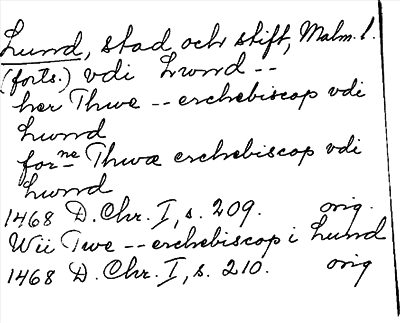 Lund, stad och stift, Malm. l.
(forts.) vdi Lwnd --
her Thwe -- erchebiscop vdi
Lwnd
forne Thwæ erchebiscop vdi
Lwnd
1468 D. Chr. I, s. 209. orig.
Wii Twe -- erchebiscop i Lund
1468 D. Chr. I, s. 210. orig